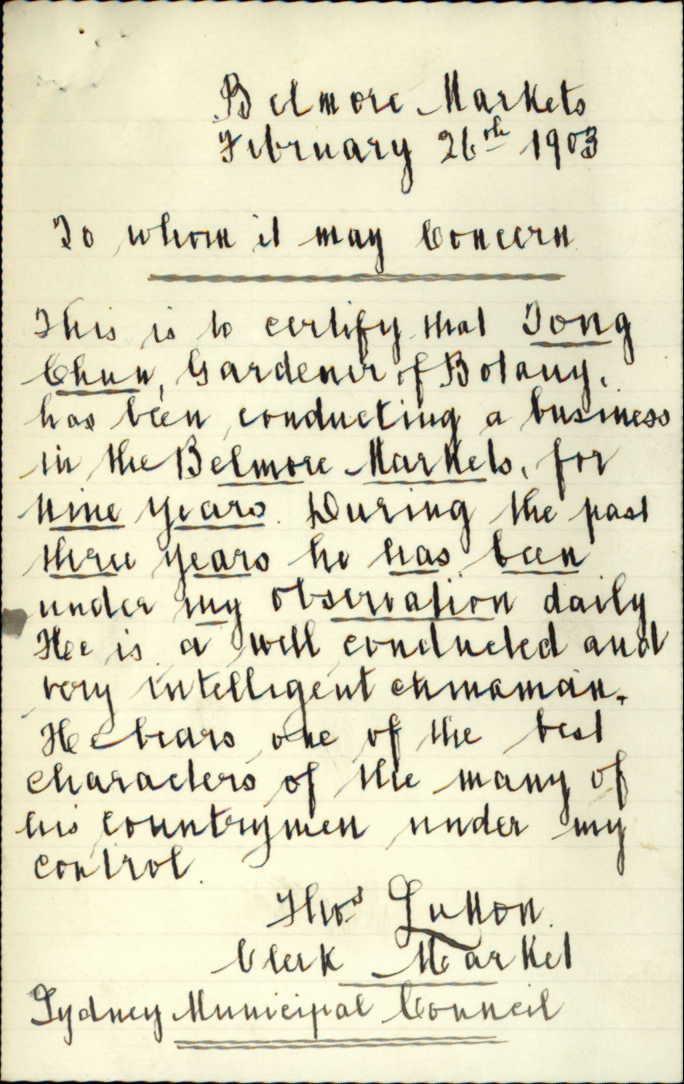 Belmore Markets
February 26th 1903
To whom it may Concern
This is to certify that Tong
Chun, Gardener of Botany,
has been conducting a business
in the Belmore Markets, for
Nine Years. During the past
three years he has been
under my observation daily
He is a well conducted and
very intelligent chinaman.
He bears one of the best
characters of the many of
his countrymen under my
control.
Thos Lutton.
Clerk Market
Sydney Municipal Council